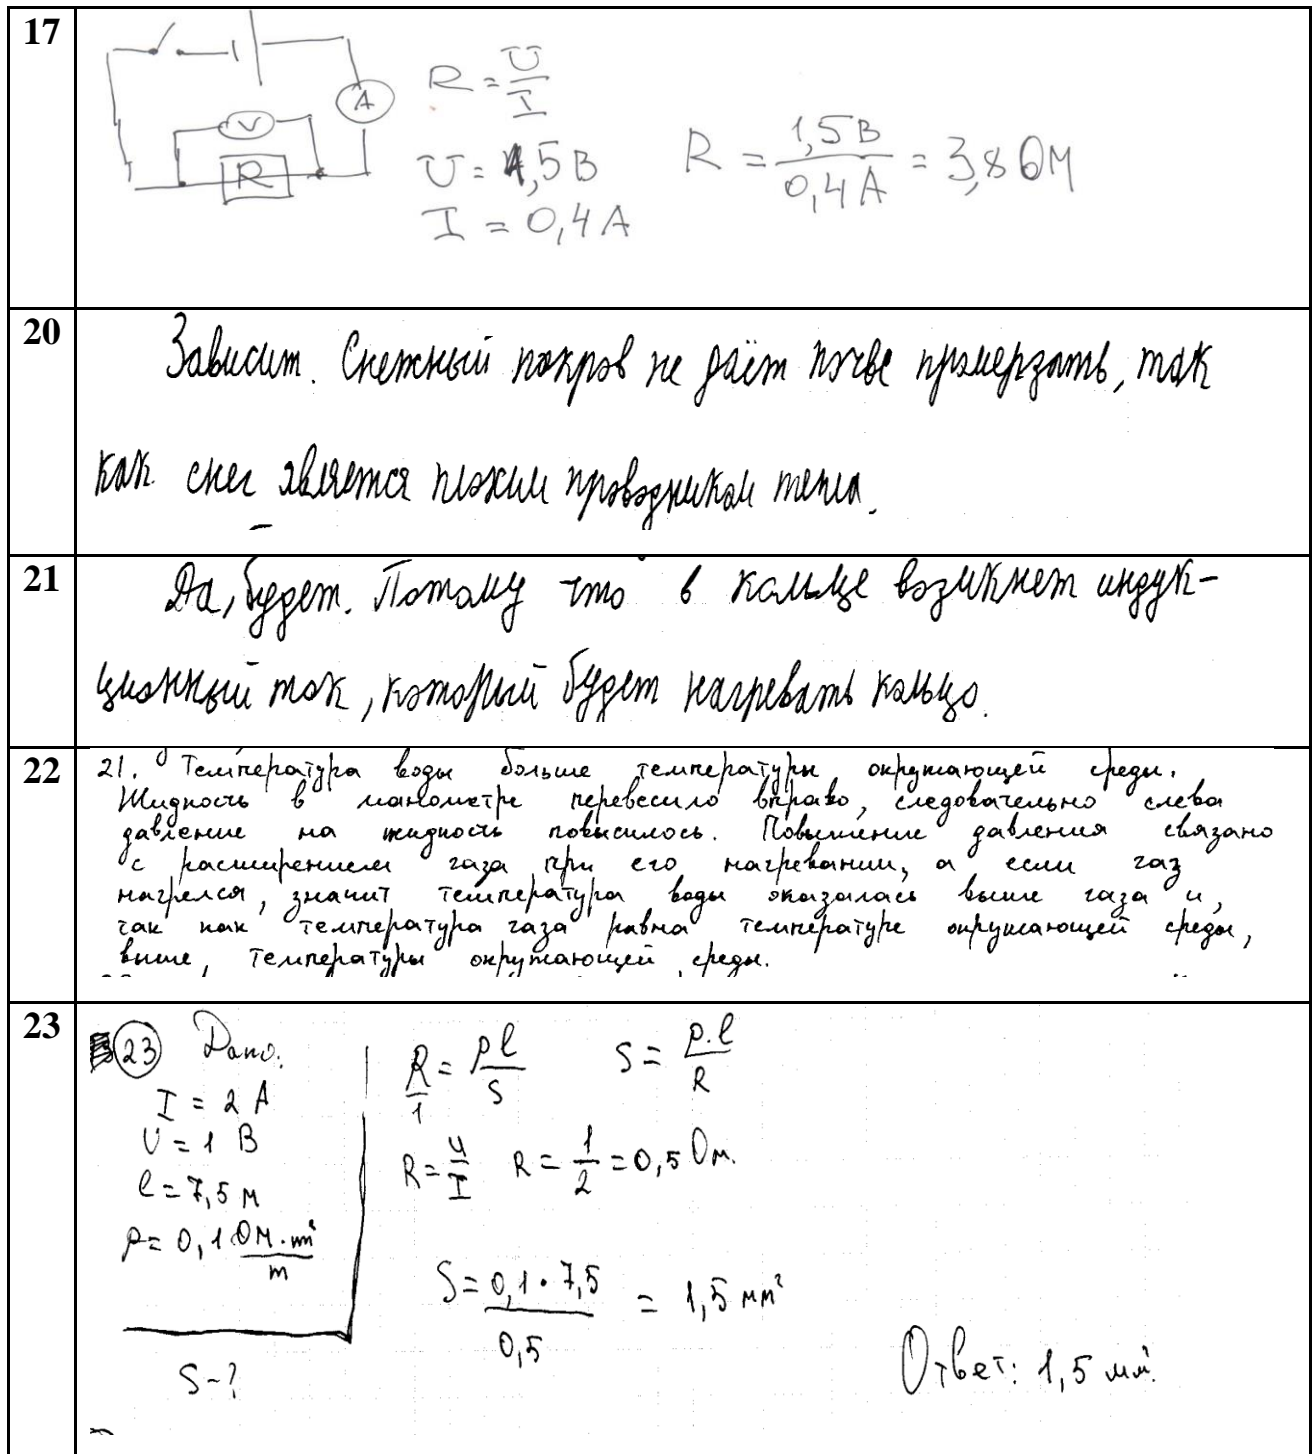 17
A
V
R
R = U/I
U = 1,5 В
I = 0,4 А
R = 1,5 В/0,4 А = 3,8 Ом
20
Зависит. Снежный покров не даёт почве промерзать, так
как снег является плохим проводником тепла.
21
Да, будет. Потому что в кольце возникнет индук-
ционный ток, который будет нагревать кольцо.
22
21. Температура воды больше температуры окружающей среды.
Жидкость в манометре перевесило вправо, следовательно слева
давление на жидкость повысилось. Повышение давления связано
с расширением газа при его нагревании, а если газ
нагрелся, значит температура воды оказалась выше газа и,
так как температура газа равна температуре окружающей среды,
выше, температуры окружающей среды.
23
23 Дано:
I = 2 А
U = 1 В
l = 7,5 м
ρ = 0,1 Ом·мм²/м
S - ?
R/1 = ρl/S S = ρ·l/R
R = U/I R = 1/2 = 0,5 Ом.
S = 0,1·7,5/0,5 = 1,5 мм²
Ответ: 1,5 мм².